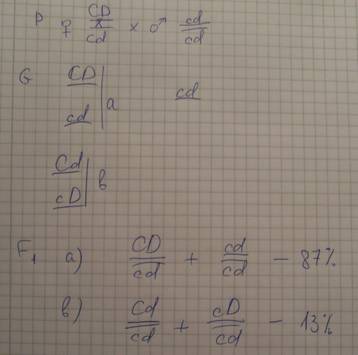 P ♀ CD/cd × ♂ cd/cd
G CD cd
cd a
Cd
cD в
F₁ а) CD/cd + cd/cd – 87%
в) Cd/cd + cD/cd – 13%